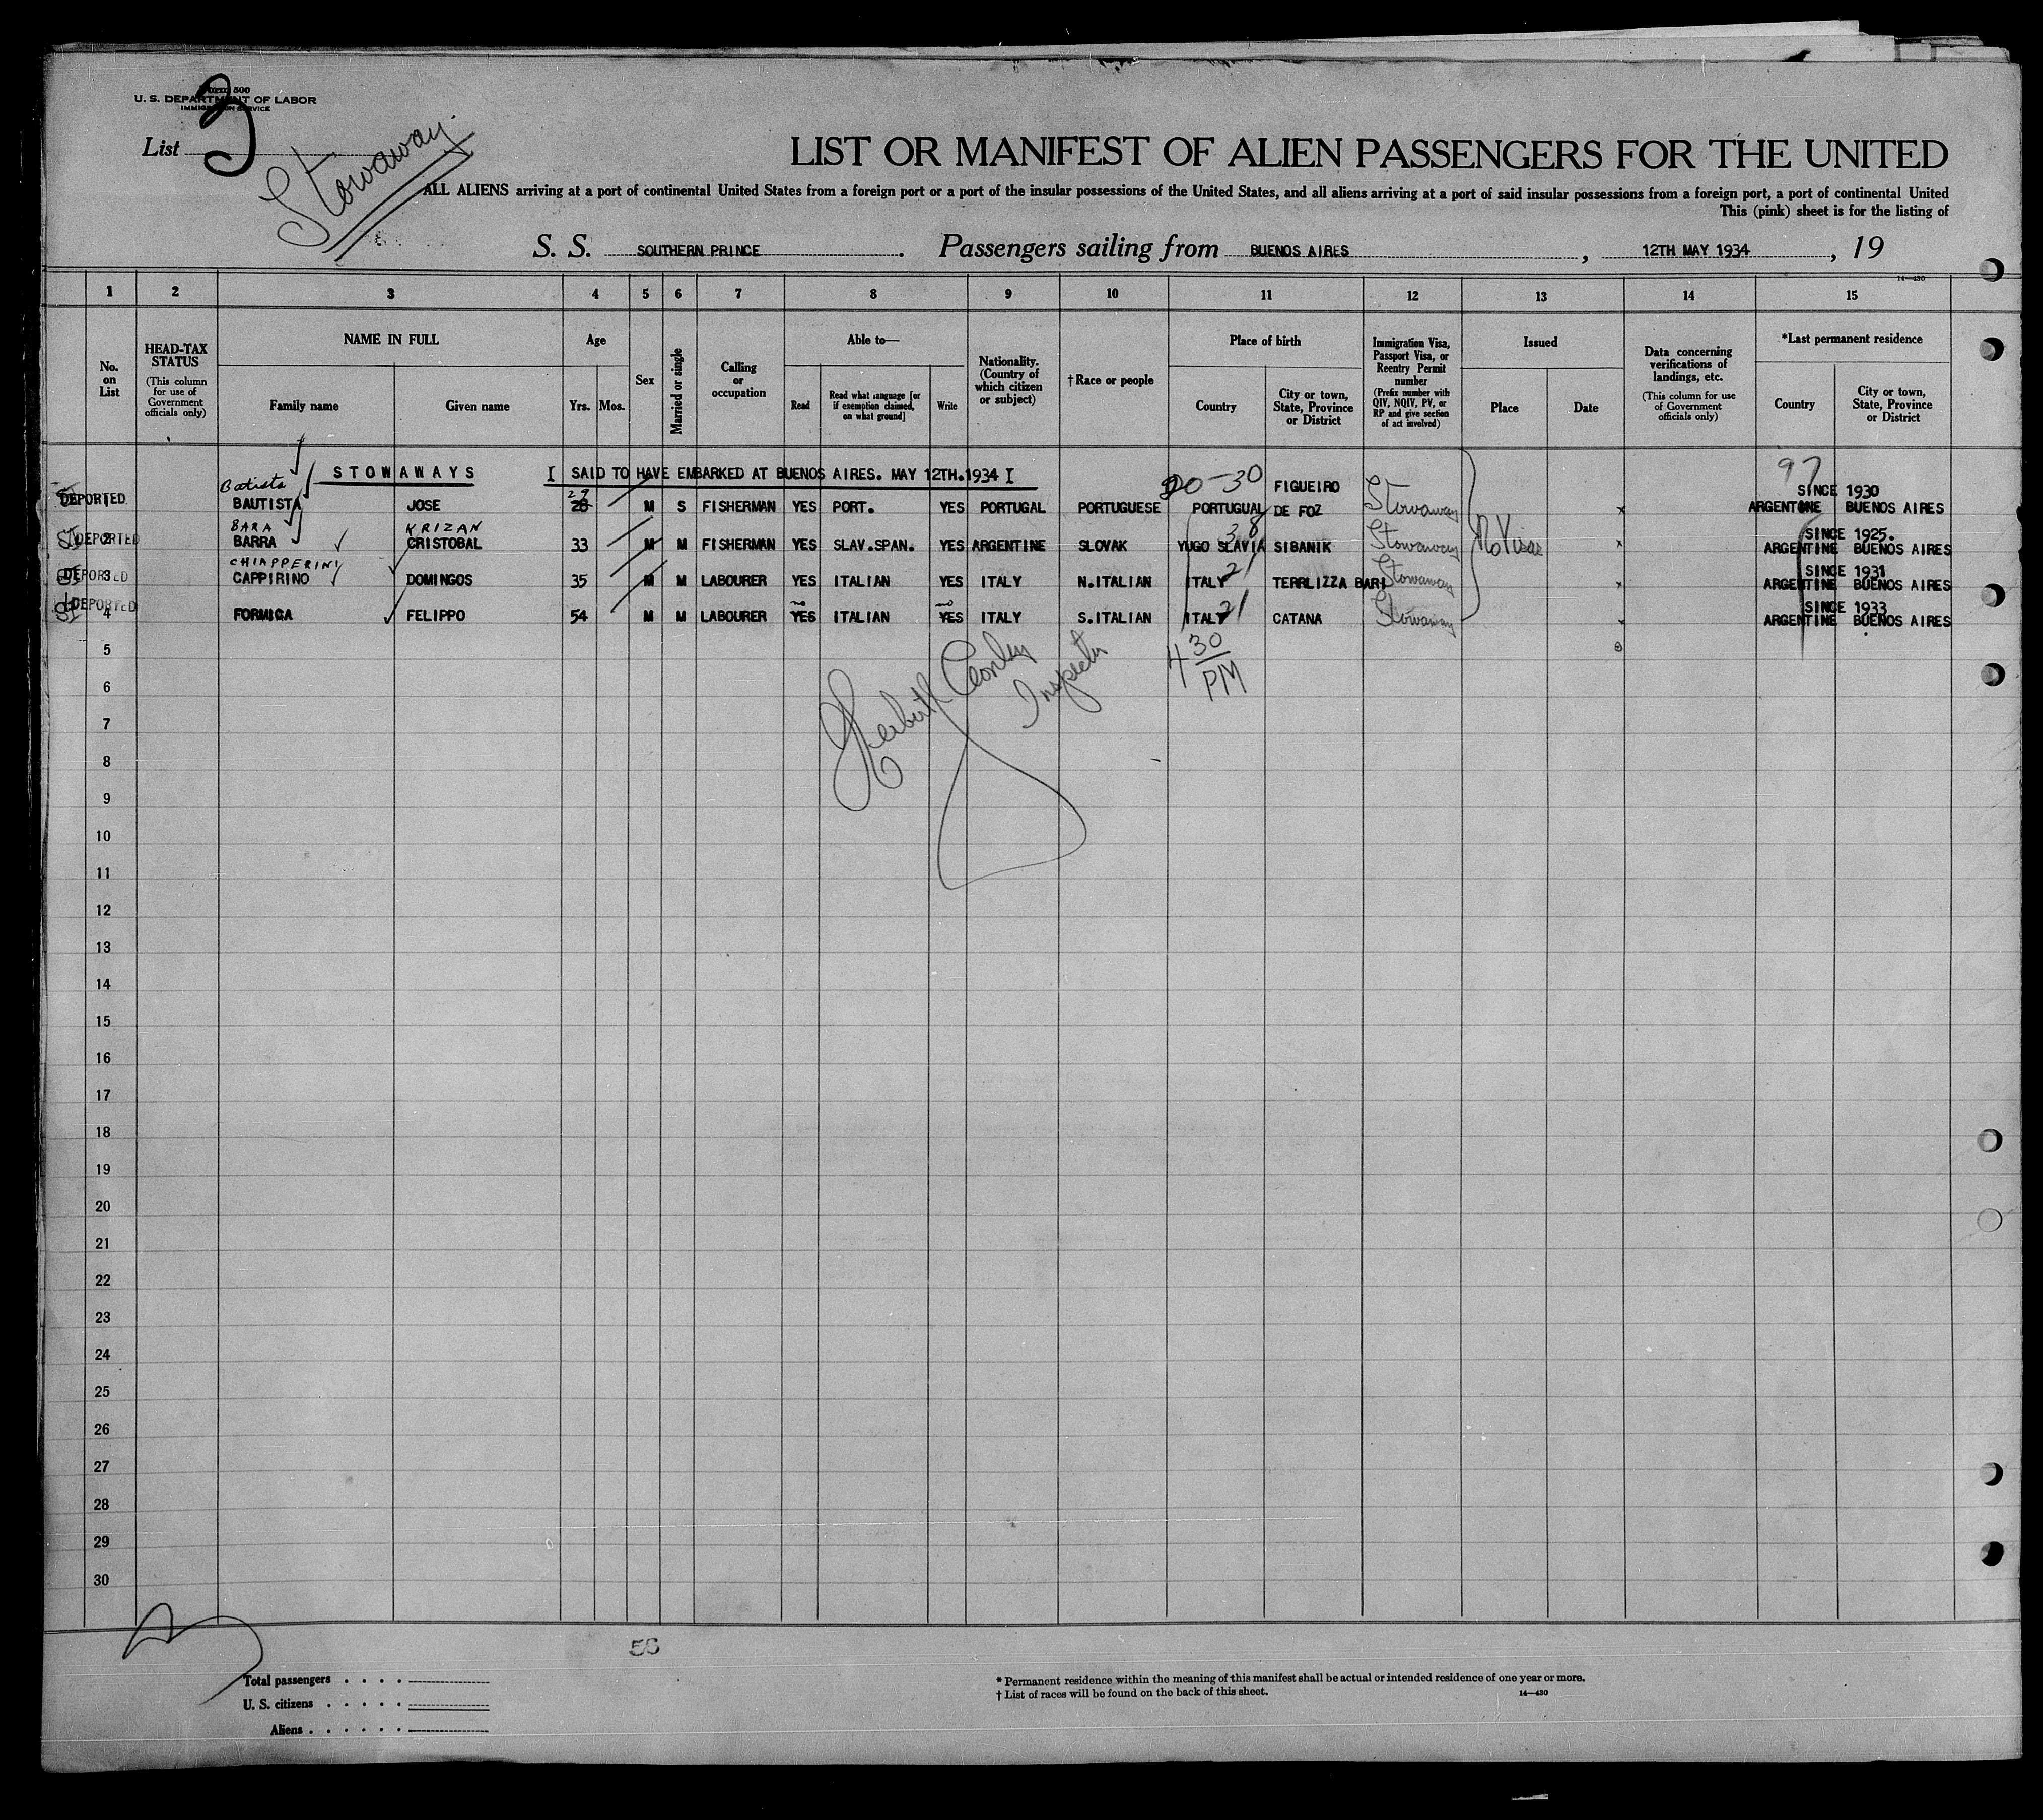 Form 500
U. S. DEPARTMENT OF LABOR
IMMIGRATION SERVICE
List 3
Stowaway.
LIST OR MANIFEST OF ALIEN PASSENGERS FOR THE UNITED
ALL ALIENS arriving at a port of continental United States from a foreign port or a port of the insular possessions of the United States, and all aliens arriving at a port of said insular possessions from a foreign port, a port of continental United
This (pink) sheet is for the listing of
S. S. SOUTHERN PRINCE . Passengers sailing from BUENOS AIRES , 12TH MAY 1934 , 19
14—430
1 2 3 4 5 6 7 8 9 10 11 12 13 14 15
No. on List
HEAD-TAX STATUS (This column for use of Government officials only)
NAME IN FULL
Family name Given name
Age
Yrs. Mos.
Sex
Married or single
Calling or occupation
Able to—
Read
Read what language [or if exemption claimed, on what ground]
Write
Nationality. (Country of which citizen or subject)
†Race or people
Place of birth
Country
City or town, State, Province or District
Immigration Visa, Passport Visa, or Reentry Permit number (Prefix number with QIV, NQIV, PV, or RP and give section of act involved)
Issued
Place Date
Data concerning verifications of landings, etc. (This column for use of Government officials only)
*Last permanent residence
Country
City or town, State, Province or District
STOWAWAYS I SAID TO HAVE EMBARKED AT BUENOS AIRES. MAY 12TH.1934 I
20-30 FIGUEIRO 97
Batista 27 SINCE 1930
DEPORTED 1 BAUTISTA JOSE 28 M S FISHERMAN YES PORT. YES PORTUGAL PORTUGUESE PORTUGUAL DE FOZ Stowaway ARGENTONE BUENOS AIRES
BARA KRIZAN 38 No Visas SINCE 1925.
SI DEPORTED 2 BARRA CRISTOBAL 33 M M FISHERMAN YES SLAV.SPAN. YES ARGENTINE SLOVAK YUGO SLAVIA SIBANIK Stowaway ARGENTINE BUENOS AIRES
CHIAPPERINI 21 SINCE 1931
SI DEPORTED 3 CAPPIRINO DOMINGOS 35 M M LABOURER YES ITALIAN YES ITALY N.ITALIAN ITALY TERRLIZZA BARI Stowaway ARGENTINE BUENOS AIRES
no no 21 SINCE 1933
SI DEPORTED 4 FORMICA FELIPPO 54 M M LABOURER YES ITALIAN YES ITALY S.ITALIAN ITALY CATANA Stowaway ARGENTINE BUENOS AIRES
4 30 PM
Inspector
5
6
7
8
9
10
11
12
13
14
15
16
17
18
19
20
21
22
23
24
25
26
27
28
29
30
Total passengers . . . .
U. S. citizens . . . . .
Aliens . . . . . .
* Permanent residence within the meaning of this manifest shall be actual or intended residence of one year or more.
† List of races will be found on the back of this sheet.
14—430